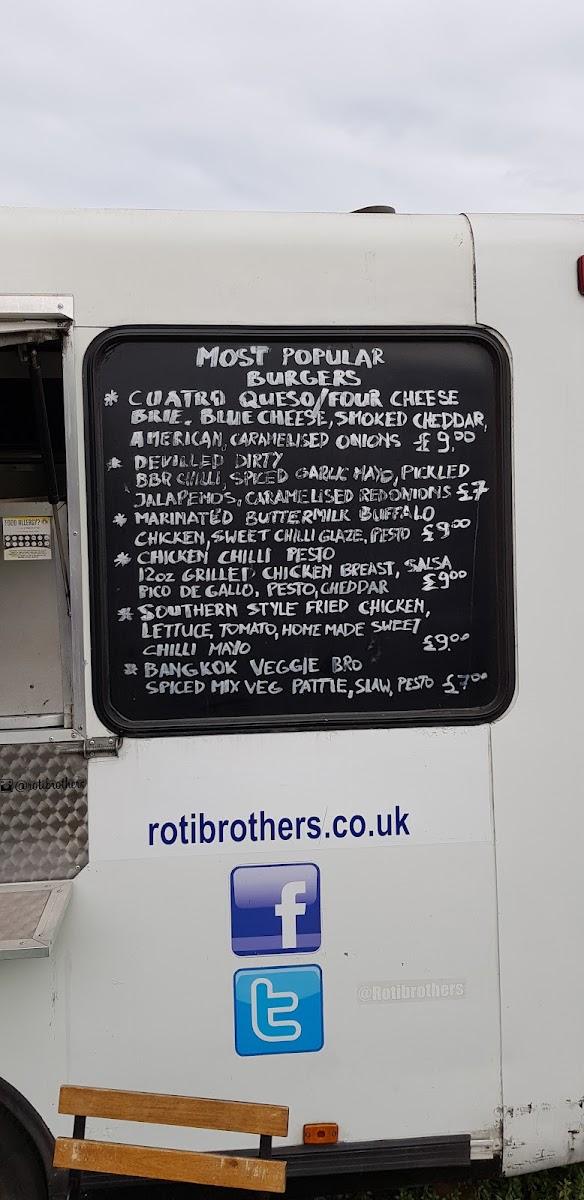 MOST POPULAR
BURGERS
* CUATRO QUESO/FOUR CHEESE
BRIE. BLUE CHEESE, SMOKED CHEDDAR,
AMERICAN, CARAMELISED ONIONS £9.00
* DEVILLED DIRTY
BBR CHILLI, SPICED GARLIC MAYO, PICKLED
JALAPENOS, CARAMELISED RED ONIONS £7
* MARINATED BUTTERMILK BUFFALO
CHICKEN, SWEET CHILLI GLAZE, PESTO £9.00
* CHICKEN CHILLI PESTO
12oz GRILLED CHICKEN BREAST, SALSA
PICO DE GALLO, PESTO, CHEDDAR £9.00
* SOUTHERN STYLE FRIED CHICKEN,
LETTUCE, TOMATO, HOME MADE SWEET
CHILLI MAYO £9.00
* BANGKOK VEGGIE BRO
SPICED MIX VEG PATTIE, SLAW, PESTO £7.00
FOOD ALLERGY?
@rotibrothers
rotibrothers.co.uk
f
t
@Rotibrothers